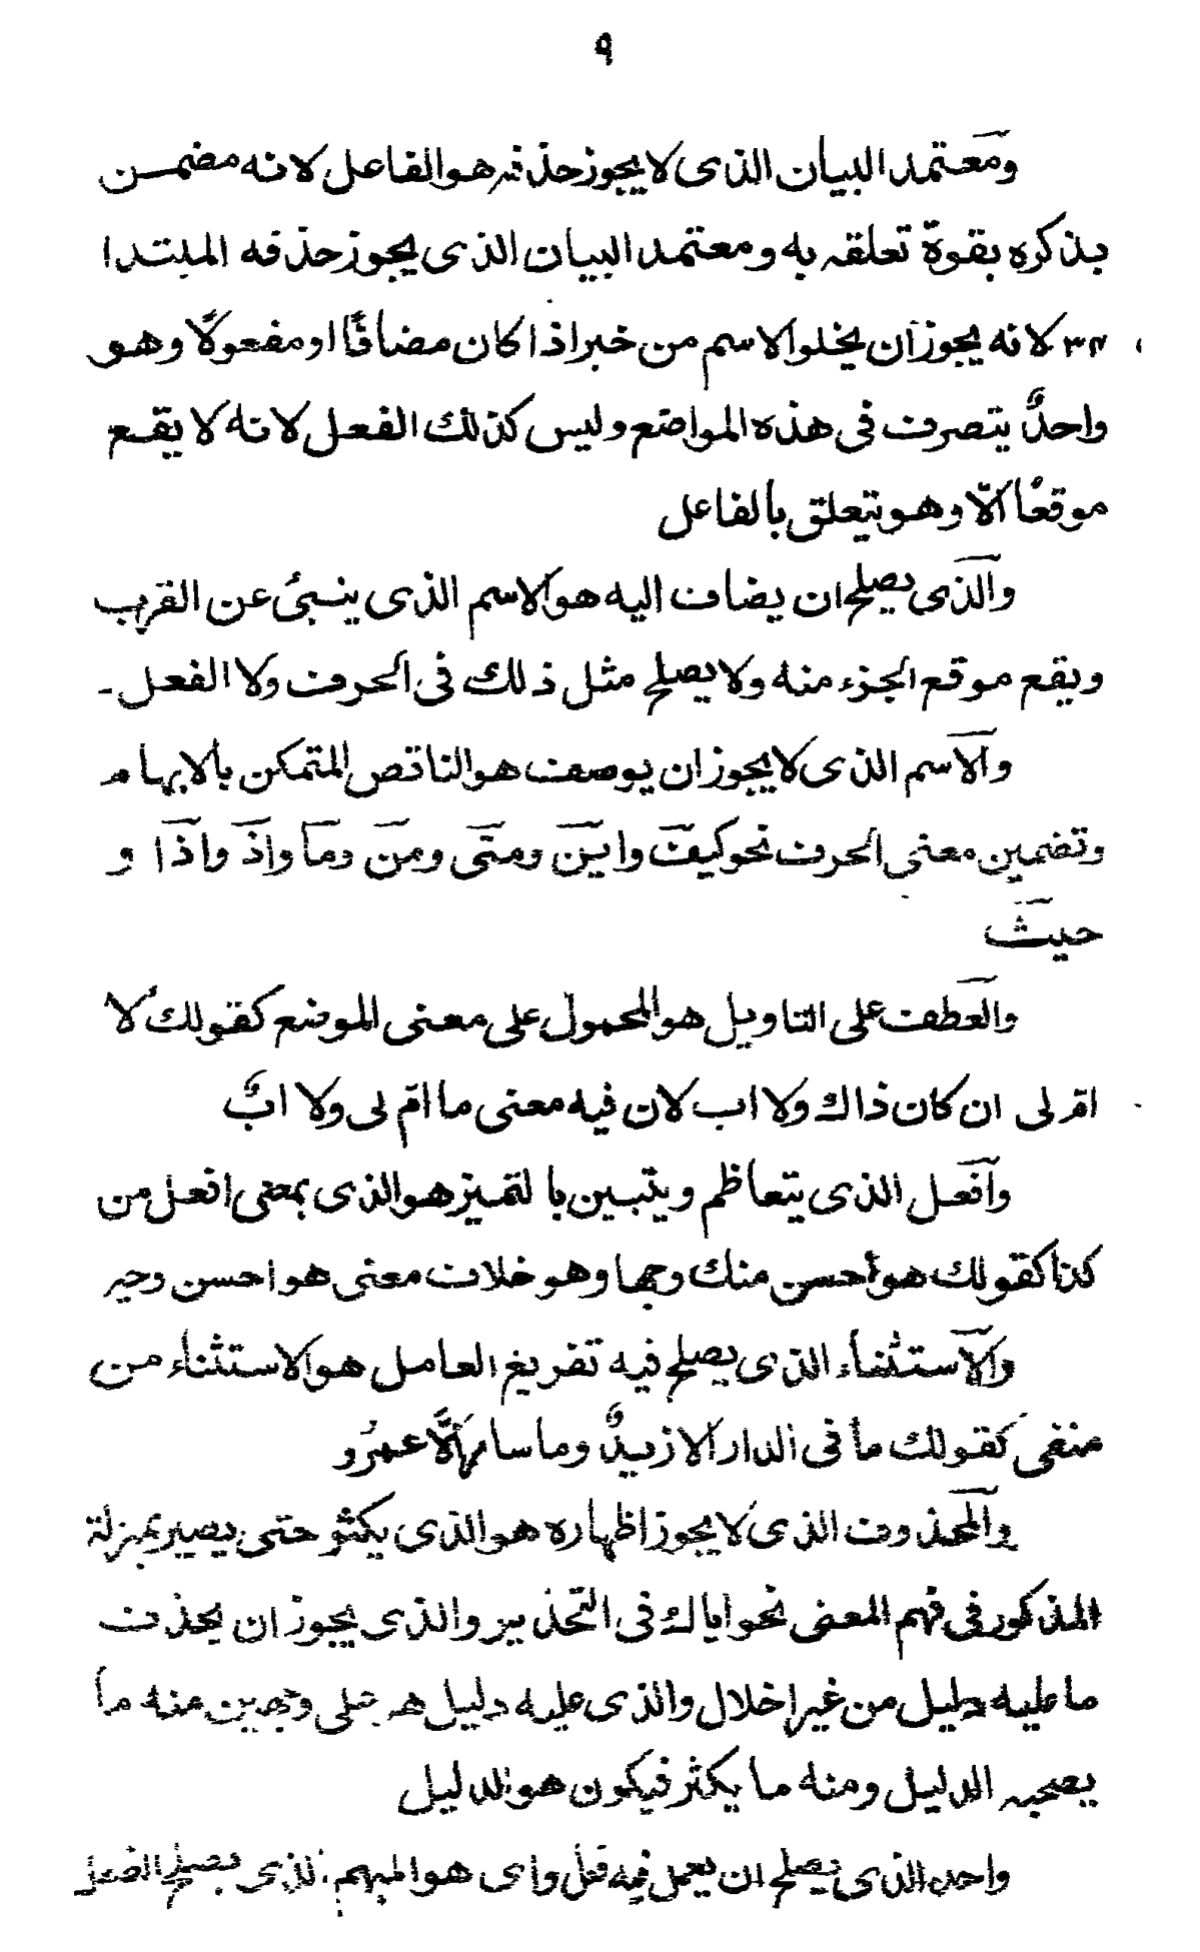 ٩
ومعتمد البيان الذى لا يجوز حذفه هو الفاعل لانه مضمن
بذكره بقوة تعلقه به ومعتمد البيان الذى يجوز حذفه المبتدا
لانه يجوز أن يخلو الاسم من خبر اذا كان مضافًا او مفعولًا وهو
واحدٌ يتصرف فى هذه المواضع وليس كذلك الفعل لانه لا يقع
موقعًا الّا وهو يتعلق بالفاعل
والذى يصلح ان يضاف اليه هو الاسم الذى ينبئُ عن القرب
ويقع موقع الجزء منه ولا يصلح مثل ذلك فى الحرف ولا الفعل -
والاسم الذى لا يجوز ان يوصف هو الناقص المتمكن بالابهام
وتضمين معنى الحرف نحو كيف واين ومتى ومن وما واذ واذا و
حيث
والعطف على التاويل هو المحمول على معنى الموضع كقولك لا
امّ لى ان كان ذاك ولا اب لان فيه معنى ما امّ لى ولا ابٌ
وافعل الذى يتعاظم ويتبين بالتميز هو الذى بمعنى افعل من
كذا كقولك هو أحسن منك وجها وهو خلاف معنى هو احسن وجه
والاستثناء الذى يصلح فيه تفريغ العامل هو الاستثناء من
منفى كقولك ما فى الدار الا زيدٌ وما سامها الّا عمرُو
والمحذوف الذى لا يجوز اظهاره هو الذى يكثر حتى يصير بمنزلة
المذكور فى فهم المعنى نحو اياك فى التحذير والذى يجوز ان يحذف
ما عليه دليل من غير اخلال والذى عليه دليل هو على وجهين منه ما
يصحبه الدليل ومنه ما يكثر فيكون هو الدليل
واحد الذى يصلح ان يعمل فيه قل واى هو المبهم الذى يصلح الفعل